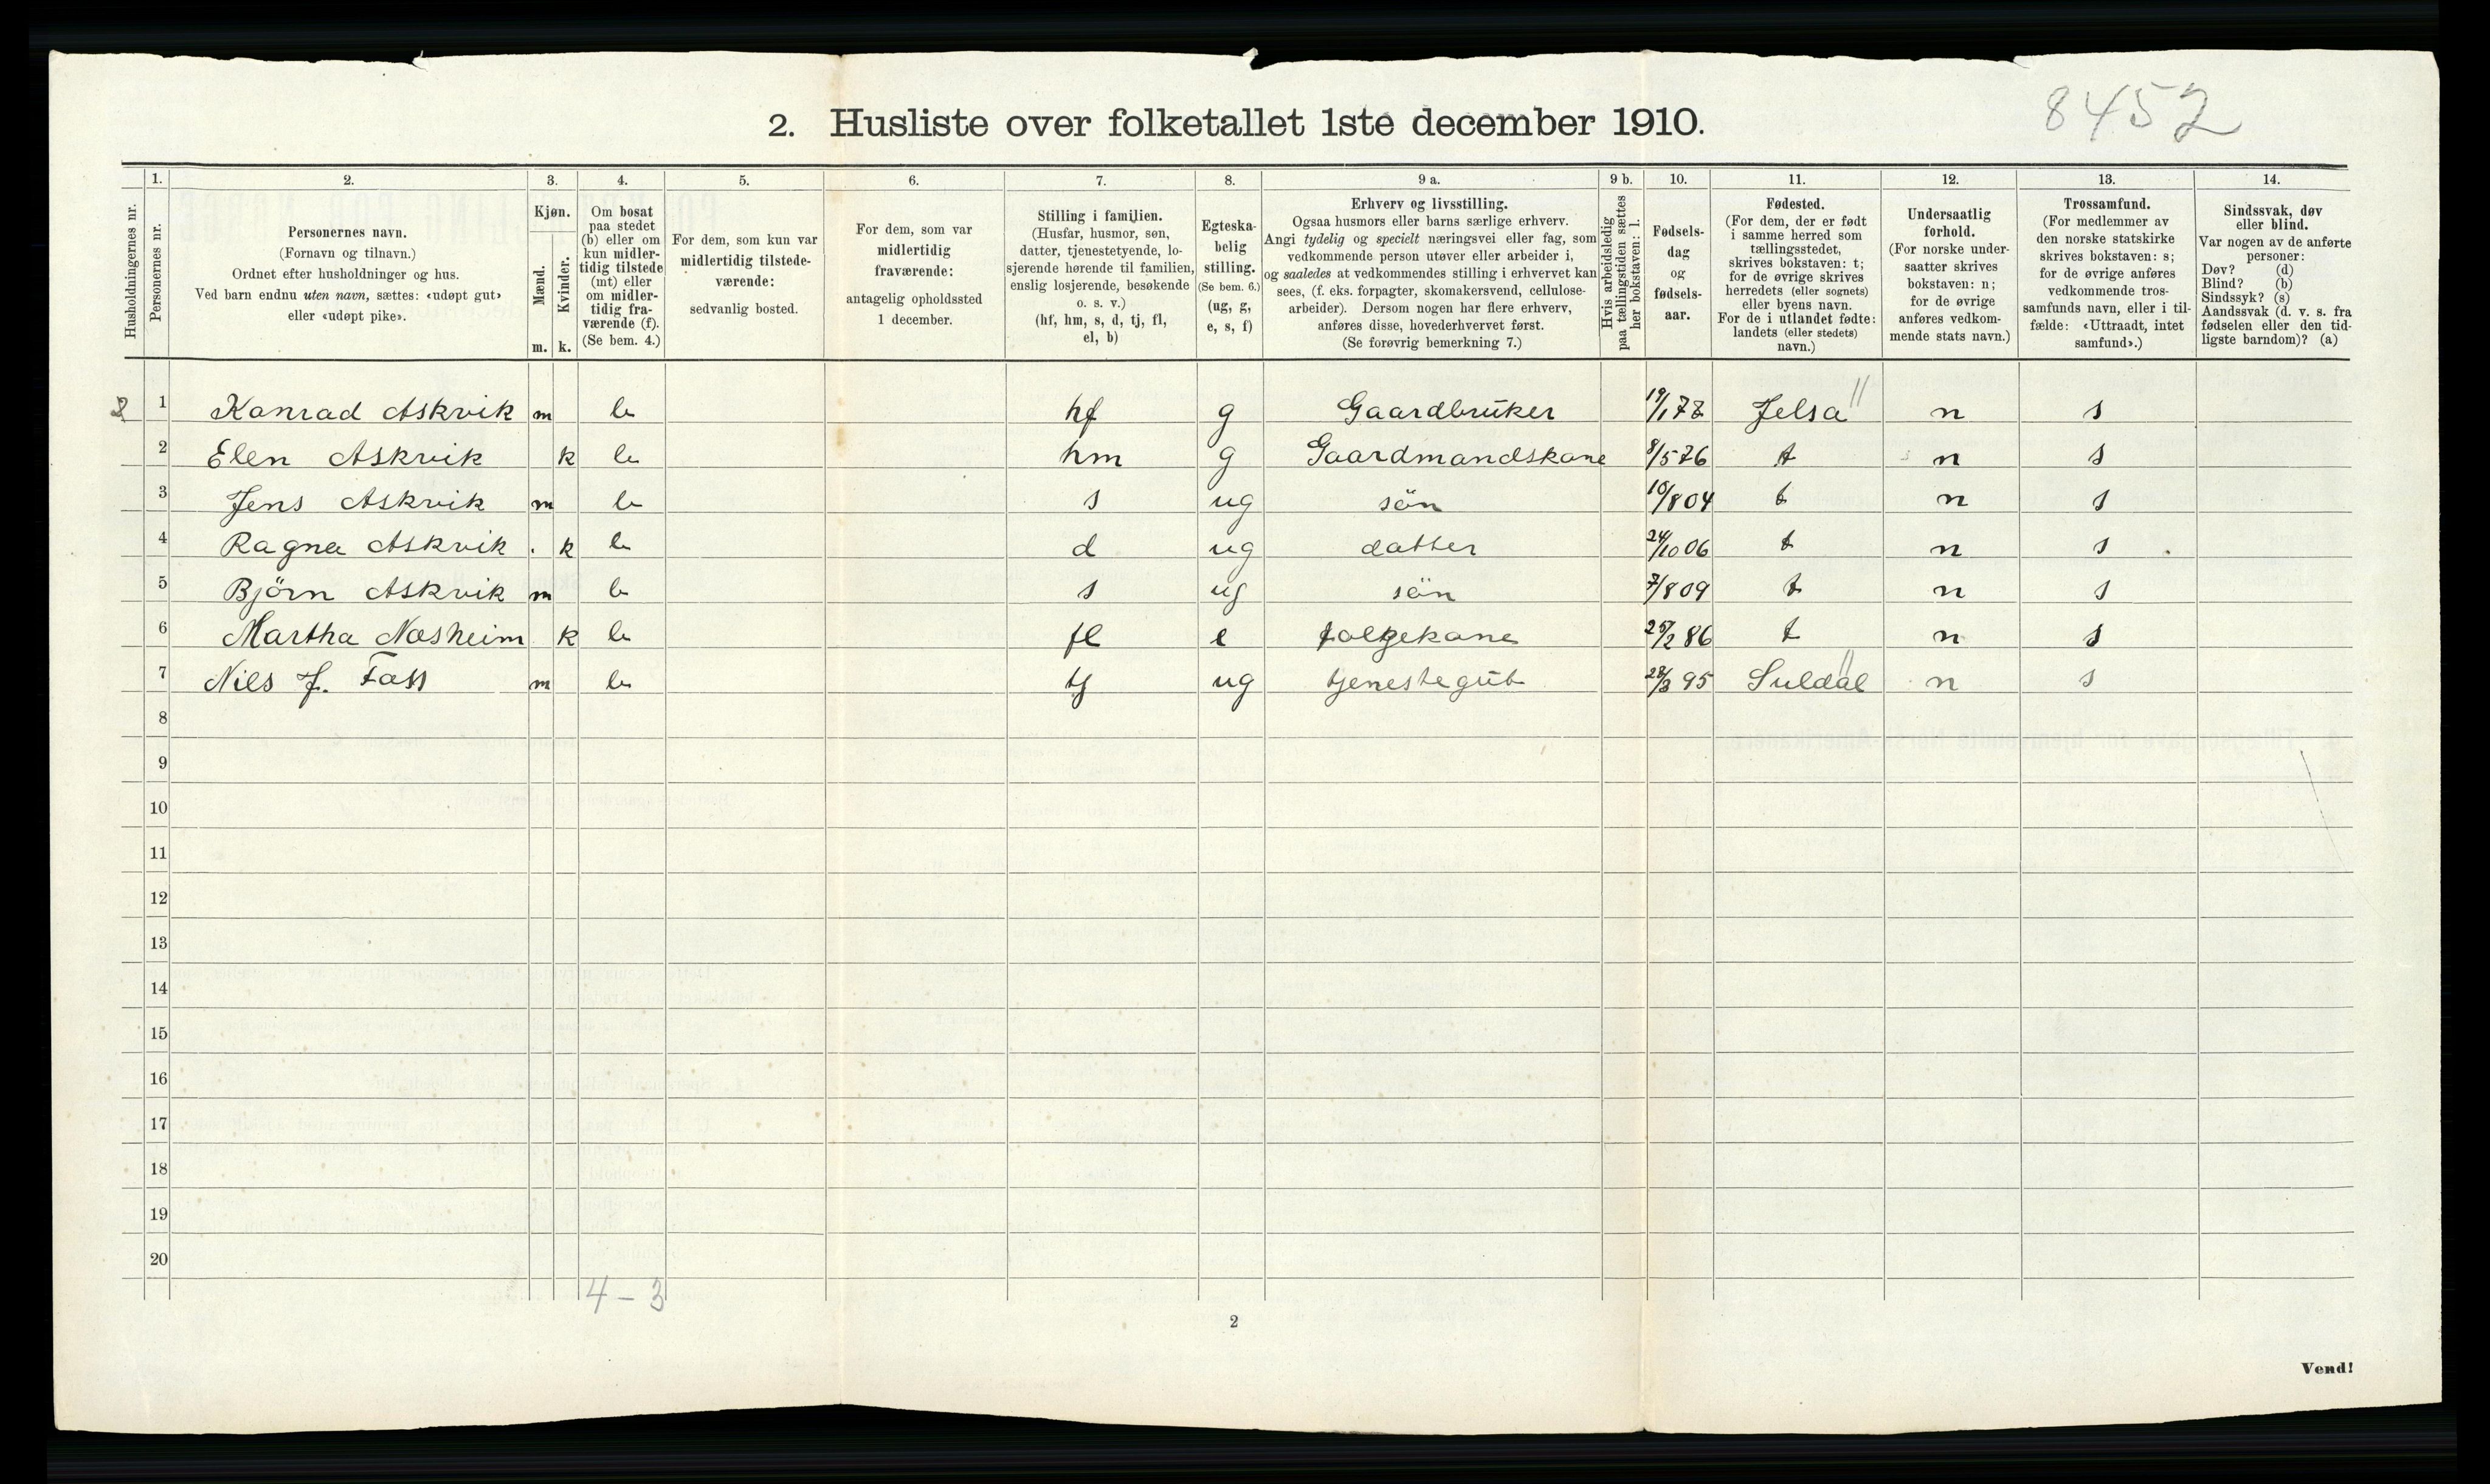 8452
2. Husliste over folketallet 1ste december 1910.
1. 2. 3. 4. 5. 6. 7. 8. 9 a. 9 b. 10. 11. 12. 13. 14.
Husholdningernes nr.
Personernes nr.
Personernes navn.
(Fornavn og tilnavn.)
Ordnet efter husholdninger og hus.
Ved barn endnu uten navn, sættes: «udøpt gut»
eller «udøpt pike».
Kjøn.
Mænd.
Kvinder.
m. k.
Om bosat
paa stedet
(b) eller om
kun midler-
tidig tilstede
(mt) eller
om midler-
tidig fra-
værende (f).
(Se bem. 4.)
For dem, som kun var
midlertidig tilstede-
værende:
sedvanlig bosted.
For dem, som var
midlertidig
fraværende:
antagelig opholdssted
1 december.
Stilling i familien.
(Husfar, husmor, søn,
datter, tjenestetyende, lo-
sjerende hørende til familien,
enslig losjerende, besøkende
o. s. v.)
(hf, hm, s, d, tj, fl,
el, b)
Egteska-
belig
stilling.
(Se bem. 6.)
(ug, g,
e, s, f)
Erhverv og livsstilling.
Ogsaa husmors eller barns særlige erhverv.
Angi tydelig og specielt næringsvei eller fag, som
vedkommende person utøver eller arbeider i,
og saaledes at vedkommendes stilling i erhvervet kan
sees, (f. eks. forpagter, skomakersvend, cellulose-
arbeider). Dersom nogen har flere erhverv,
anføres disse, hovederhvervet først.
(Se forøvrig bemerkning 7.)
Hvis arbeidsledig
paa tællingstiden sættes
her bokstaven: l.
Fødsels-
dag
og
fødsels-
aar.
Fødested.
(For dem, der er født
i samme herred som
tællingsstedet,
skrives bokstaven: t;
for de øvrige skrives
herredets (eller sognets)
eller byens navn.
For de i utlandet fødte:
landets (eller stedets)
navn.)
Undersaatlig
forhold.
(For norske under-
saatter skrives
bokstaven: n;
for de øvrige
anføres vedkom-
mende stats navn.)
Trossamfund.
(For medlemmer av
den norske statskirke
skrives bokstaven: s;
for de øvrige anføres
vedkommende tros-
samfunds navn, eller i til-
fælde: «Uttraadt, intet
samfund».)
Sindssvak, døv
eller blind.
Var nogen av de anførte
personer:
Døv? (d)
Blind? (b)
Sindssyk? (s)
Aandssvak (d. v. s. fra
fødselen eller den tid-
ligste barndom)? (a)
2 1 Konrad Askvik m b hf g Gaardbruker Jelsa n s
2 Elen Askvik k b hm g Gaardmandskone 8/5 76 t n s
3 Jens Askvik m b s ug sön 10/8 04 t n s
4 Ragna Askvik k b d ug datter 24/10 06 t n s
5 Björn Askvik m b s ug sön 7/8 09 t n s
6 Martha Næsheim k b fl e 25/2 86 t n s
7 Nils J. m b tj ug tjenestegut 95 Suldal n s
8
9
10
11
12
13
14
15
16
17
18
19
20
4 – 3
2
Vend!